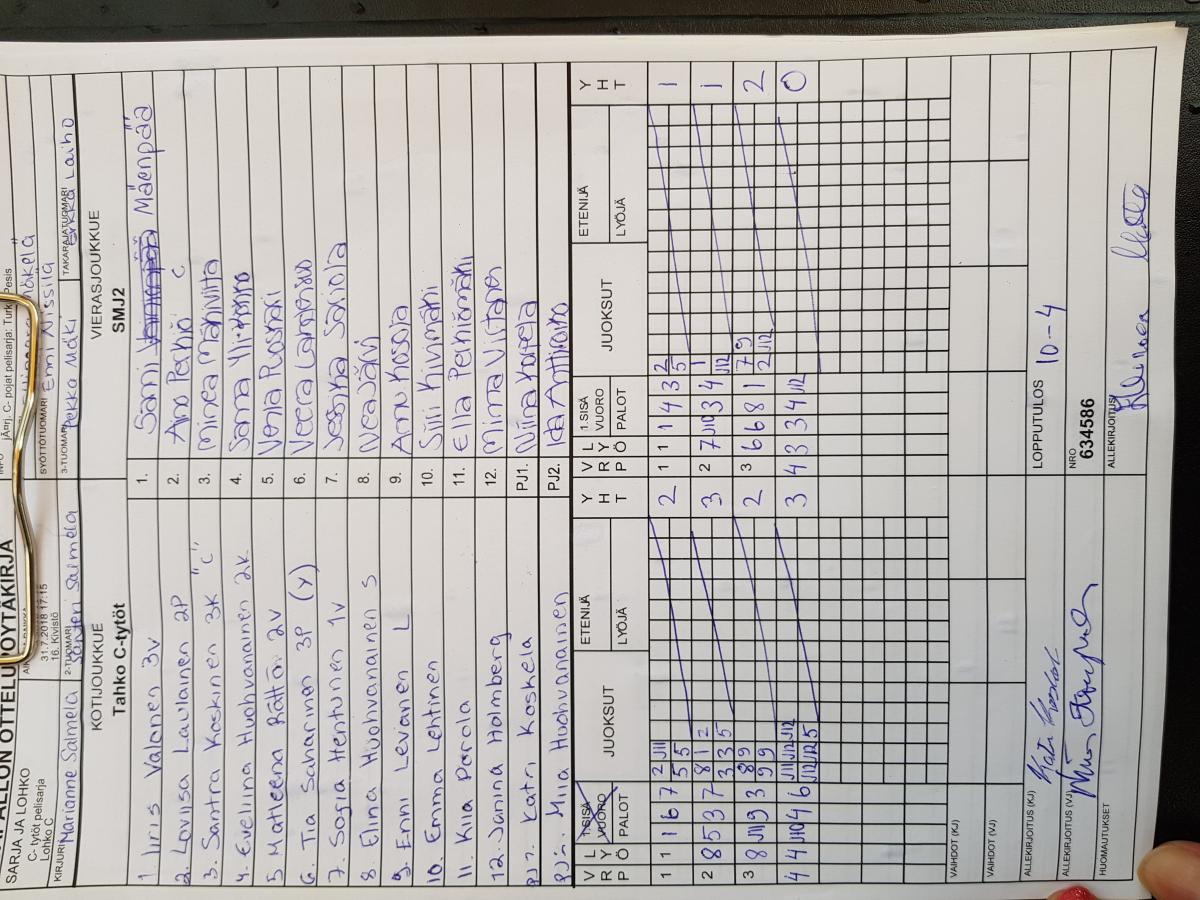 PALLON OTTELUPÖYTÄKIRJA
SARJA JA LOHKO
C- tytöt pelisarja
Lohko C
31.7.2018 17:15
16. Kivistö
INFO
C- pojat pelisarja: Turku Pesis
KIRJURI Marianne Salmela
2-TUOMARI Santeri Salmela
SYÖTTÖTUOMARI Emmi Nissilä
3-TUOMARI Pekka Mäki
TAKARAJATUOMARI Erkka Laiho
KOTIJOUKKUE
Tahko C-tytöt
1. Iiris Valonen 3V
2. Loviisa Laulainen 2P
3. Santra Koskinen 3K "C"
4. Eveliina Huohvanainen 2K
5 Matleena Rättö 2V
6. Tia Saharinen 3P (Y)
7. Sofia Hentunen 1V
8 Elina Huohvanainen S
9. Enni Levänen L
10. Emma Lehtinen
11. Kiia Parola
12. Janina Holmberg
PJ1. Katri Koskela
PJ2. Miia Huohvanainen
VIERASJOUKKUE
SMJ2
1. Sami Mäenpää
2. Aino Perhö C
3. Minea Mahiviita
4. Sonna
5. Venla
6. Veera
7. Jessika Sariola
8. Nea Järvi
9. Annu Kosola
10. Siiri Kivimäki
11. Ella
12. Minna Viitanen
PJ1. Niina Karpela
PJ2. Ida Anttiroiko
V R P L Y Ö 1.SISÄ VUORO PALOT JUOKSUT ETENIJÄ LYÖJÄ Y H T
1 1 1 6 7 2 J11 5 5 2
2 8 5 3 7 8 1 2 3 3 5 3
3 8 J11 9 3 8 9 9 9 2
4 4 J10 4 6 J11 J12 J12 J12 J12 5 3
V R P L Y Ö 1.SISÄ VUORO PALOT JUOKSUT ETENIJÄ LYÖJÄ Y H T
1 1 1 4 3 2 5 1
2 7 J10 3 4 1 J12 1
3 6 6 8 1 7 9 2 J12 2
4 3 3 4 J12 0
VAIHDOT (KJ)
VAIHDOT (VJ)
LOPPUTULOS 10-4
ALLEKIRJOITUS (KJ)
ALLEKIRJOITUS (VJ)
NRO
634586
HUOMAUTUKSET
ALLEKIRJOITUS